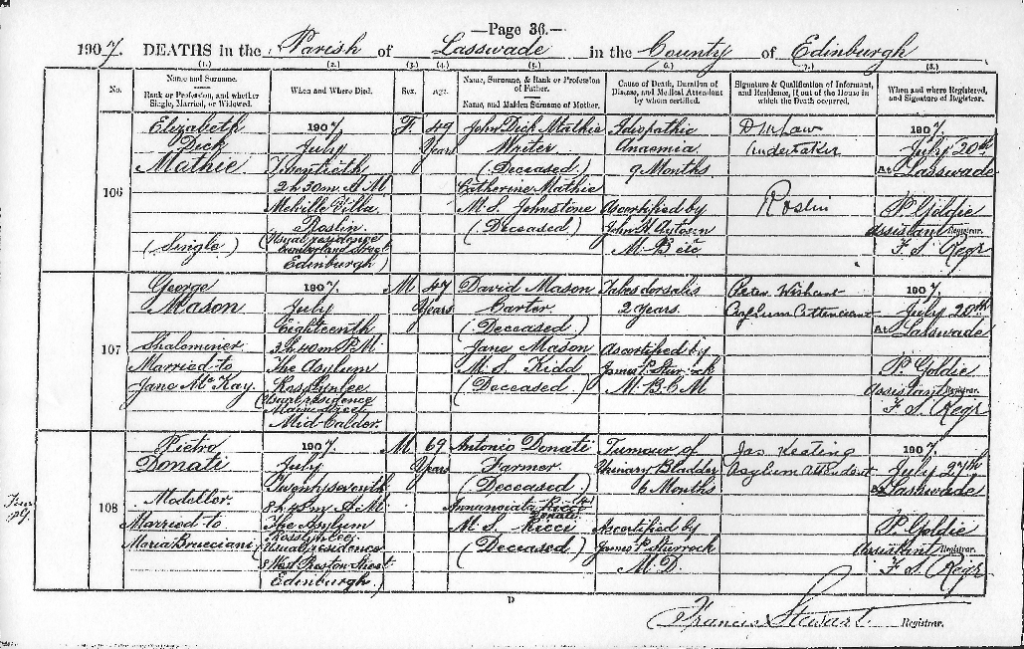 —Page 36.—
1907. DEATHS in the Parish of Lasswade in the County of Edinburgh
(1.) (2.) (3.) (4.) (5.) (6.) (7.) (8.)
No.
Name and Surname.
Rank or Profession, and whether
Single, Married, or Widowed.
When and Where Died.
Sex.
Age.
Name, Surname, & Rank or Profession
of Father.
Name, and Maiden Surname of Mother.
Cause of Death, Duration of
Disease, and Medical Attendant
by whom certified.
Signature & Qualification of Informant,
and Residence, if out of the House in
which the Death occurred.
When and where Registered,
and Signature of Registrar.
106
Elizabeth
Dick
Mathie
(Single)
1907.
July
Twentieth
2h 30m A M
Melville Villa
Roslin.
(Usual residence
Cumberland Street
Edinburgh)
F.
49
Years
John Dick Mathie
Writer
(Deceased)
Catherine Mathie
M. S. Johnstone
(Deceased)
Idiopathic
Anaemia
9 Months
As certified by
John H
M. B etc
D
Undertaker
Roslin
1907.
July 20th
At Lasswade
P. Goldie
Assistant Registrar.
F. S. Regr
107
George
Mason
Shalominer
Married to
Jane McKay.
1907.
July
Eighteenth
3h 40m P.M.
The Asylum
Rosslynlee
(Usual residence
Main Street
Mid Calder.
M
47
Years
David Mason
Carter
(Deceased)
Jane Mason
M. S. Kidd
(Deceased)
Tabes dorsalis
2 Years.
As certified by
James P. Sturrock
M. B. C M
Peter Wishart
Asylum Attendant
1907.
July 20th
At Lasswade
P. Goldie
Assistant Registrar.
F. S. Regr
108
Pietro
Donati
Modellor.
Married to
Maria Brucciani
1907.
July
Twenty seventh
8h 45m A M
The Asylum
Rosslynlee
(Usual residence
8 West Preston Street
Edinburgh)
M.
69
Years
Antonio Donati
Farmer
(Deceased)
Annunciata Ricci
Donati
M. S. Ricci
(Deceased)
Tumour of
Urinary Bladder
6 Months
As certified by
James P. Sturrock
M. D.
Jas Keating
Asylum Attendant
1907.
July 27th
At Lasswade
P. Goldie
Assistant Registrar.
F. S. Regr
D
Francis Stewart Registrar.